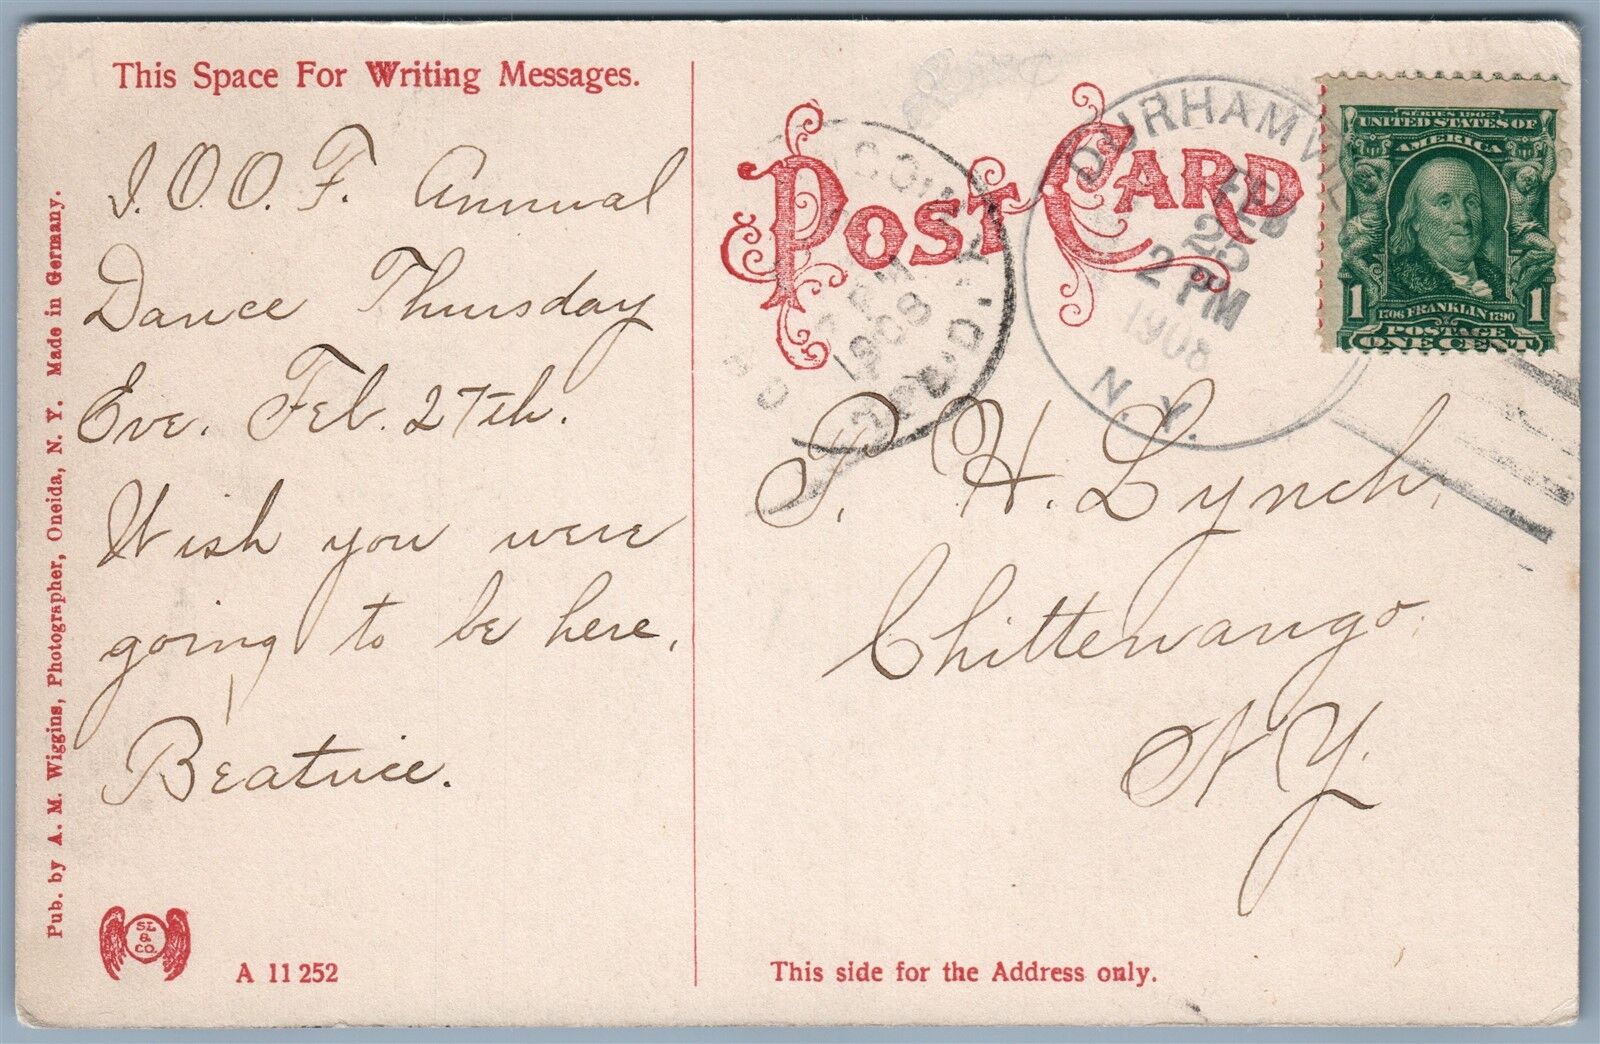 This Space For Writing Messages.
I.O.O.F. Annual
Dance Thursday
Eve. Feb. 27th.
Wish you were
going to be here.
Beatrice.
Pub. by A. M. Wiggins, Photographer, Oneida, N. Y. Made in Germany.
SL
&
CO.
A 11 252
POST CARD
1908
REC'D.
DURHAMVILLE
FEB
25
2 PM
1908
N.Y.
SERIES 1902
UNITED STATES OF
AMERICA
1 1
1706 FRANKLIN 1790
POSTAGE
ONE CENT
T. H. Lynch,
Chittenango.
N Y.
This side for the Address only.